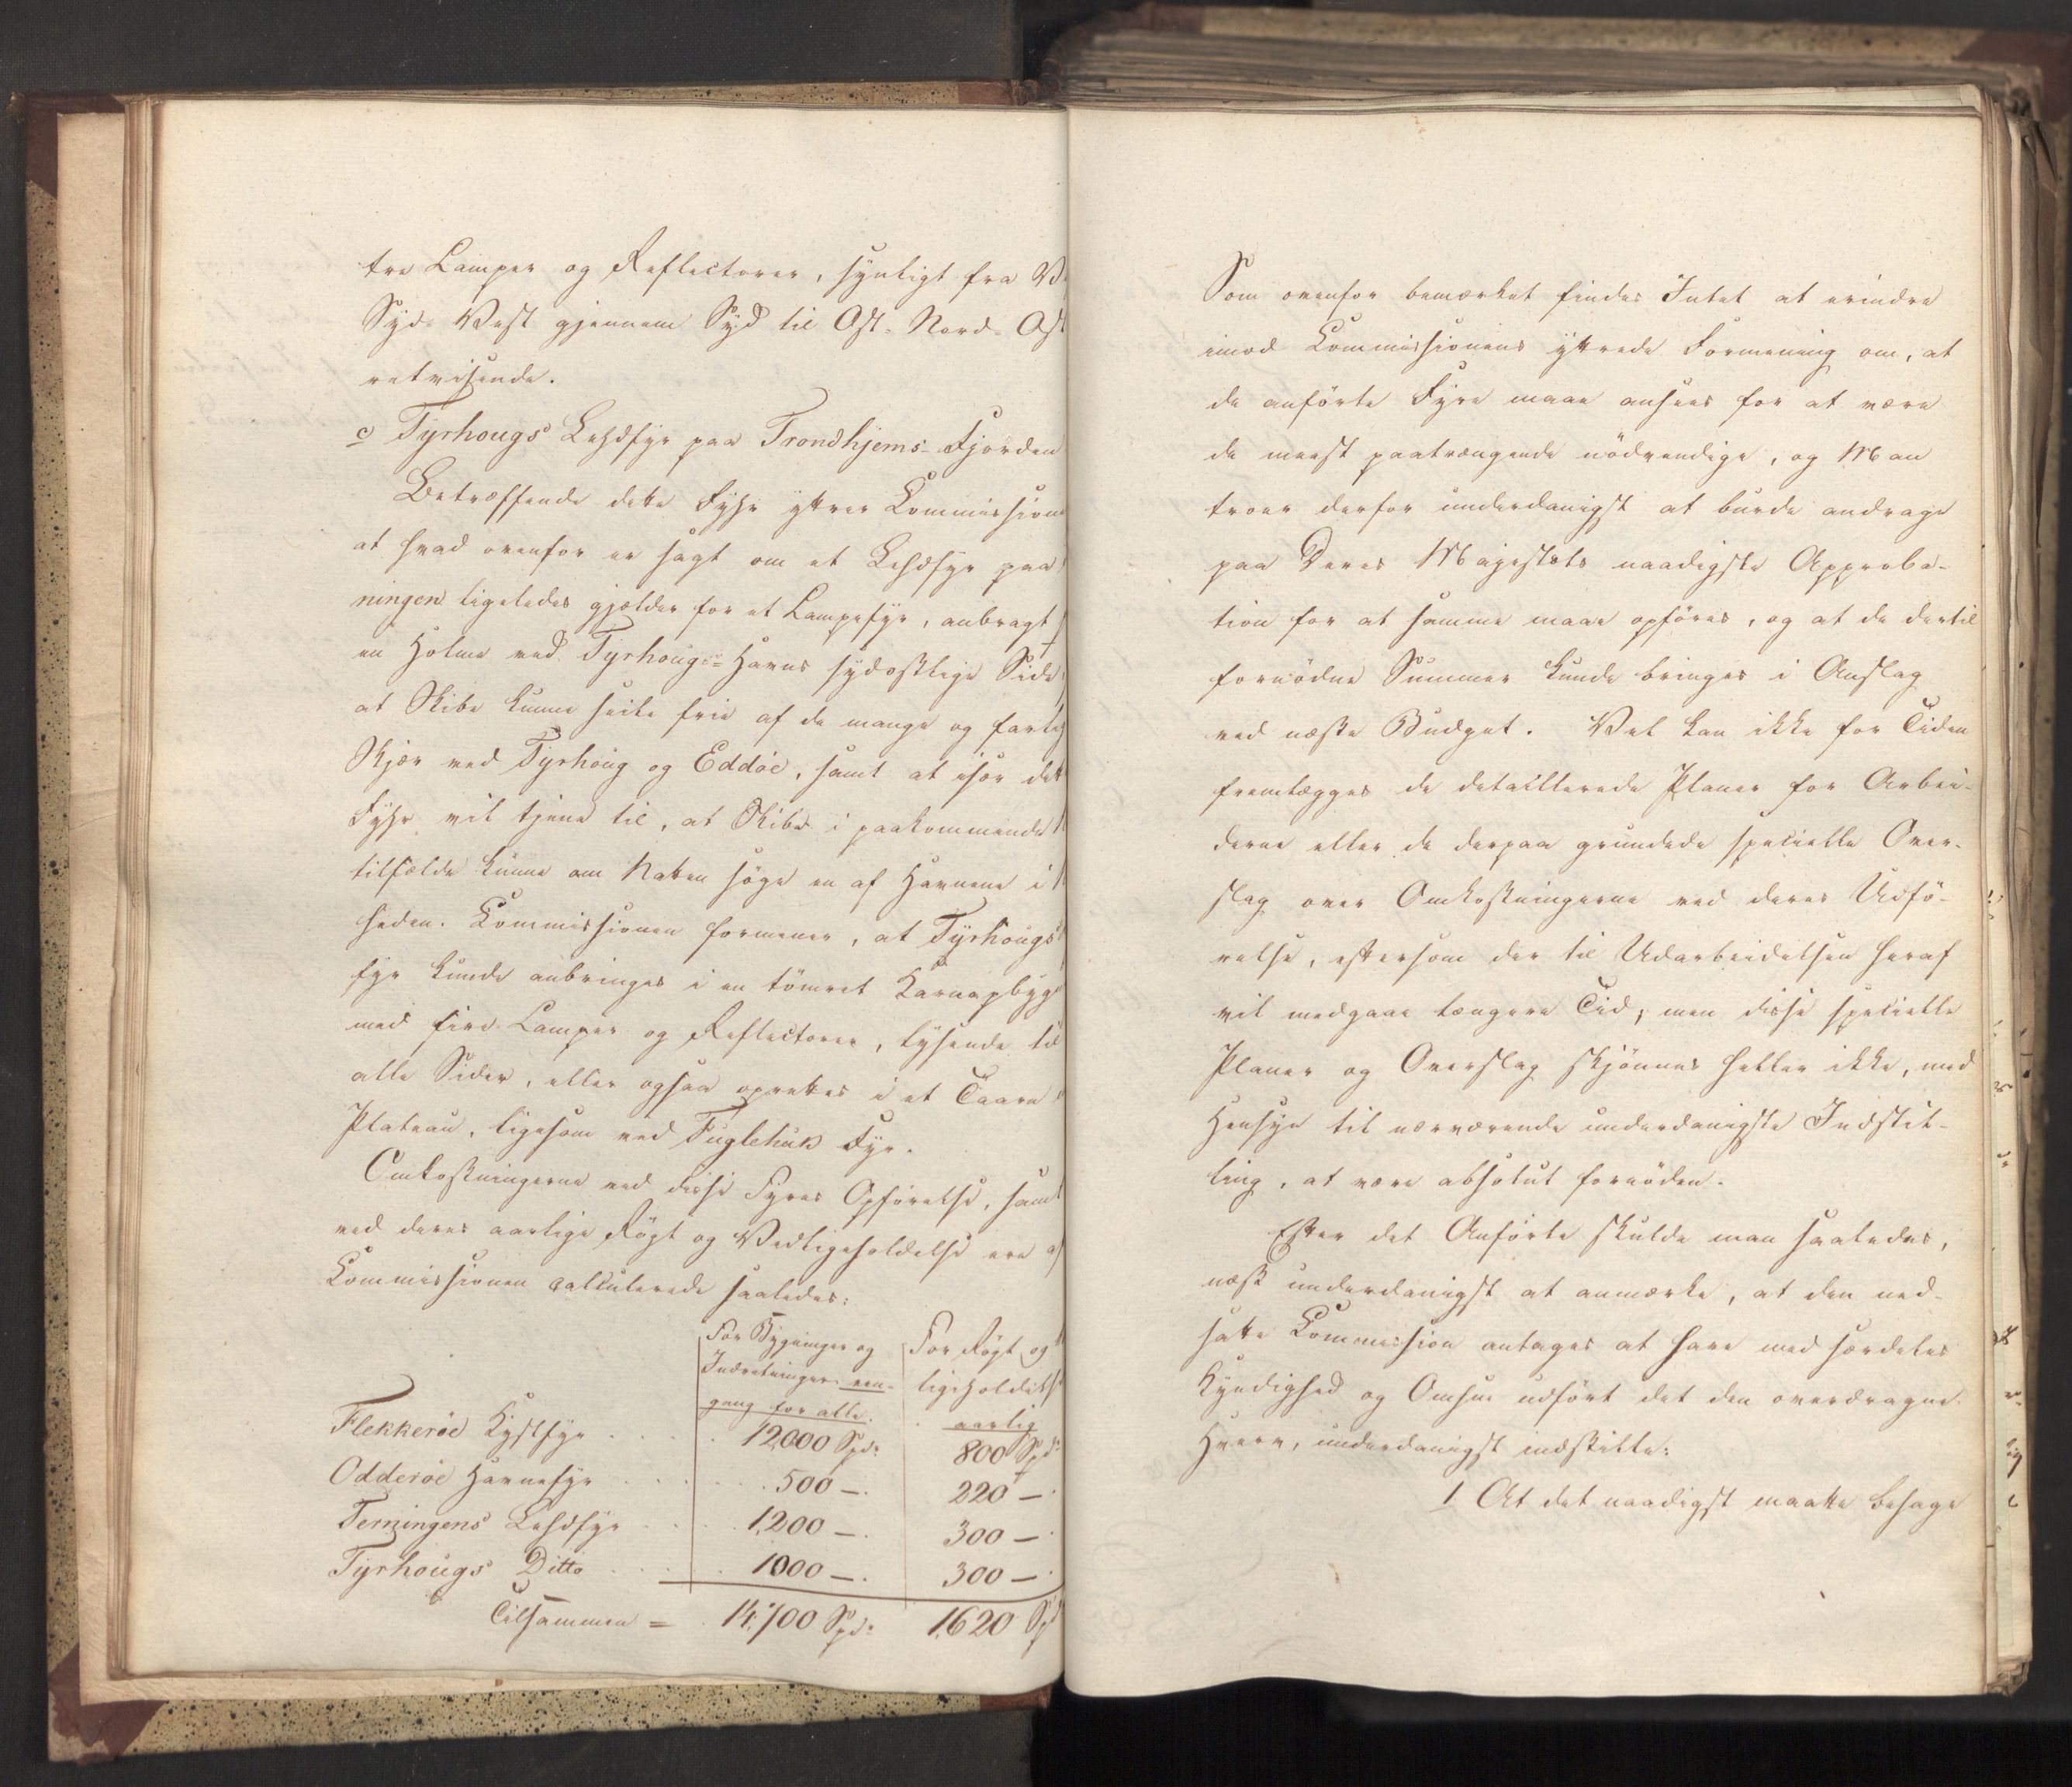 tre Lamper og Reflectorer, synligt fra V
Syd-Vest gjennem Syd til Ost-Nord-Ost
retvisende.
c) Tyrhougs Lehdfyr paa Trondhjems-Fjorden
Betræffende dette Fyhr yttrer Commission
at hvad ovenfor er sagt om et Lehdfyr paa
ningen ligeledes gjælder for et Lampefyr, anbragt
en Holme ved Tyrhougs-Havns sydostlige Side
at Skibe kunne seile frie af de mange og farlig
Skjær ved Tyrhoug og Eddöe, samt at især det
Fyhr vil tjene til, at Skibe i paakommende
tilfælde kunne om Natten söge en af Havnene i
heden. Commissionen formener, at Tyrhougs
fyr kunde anbringes i en tömret Karnapbyg
med fire Lamper og Reflectorer, lysende til
alle Sider, eller ogsaa oprettes i et Taarn
Plateau, ligesom ved Fuglehuk Fyr.
Omkostningerne ved disse Fyres Opförelse, samt
ved deres aarlige Rögt og Vedligeholdelse ere af
Commissionen calculerede saaledes:
For Bygninger og Indretninger een-gang for alle. For Rögt og ligeholdelse aarlig
Flekkeröe Kystfyr . . . 12,000 Spd: 800 Spd:
Odderöe Havnefyr . . . 500 —. 220 —
Terningens Lehdfyr . . . 1,200 —. 300 —
Tyrhougs Ditto . . . 1000 —. 300 —
Tilsammen = 14,700 Spd: 1,620 Spd
Som ovenfor bemærket findes Intet at erindre
imod Commissionens yttrede Formening om, at
de anförte Fyre maae ansees for at være
de meest paatrængende nödvendige, og Man
troer derfor underdanigst at burde andrage
paa Deres Majestæts naadigste Approba-
tion for at samme maae opföres, og at de dertil
fornödne Summer kunde bringes i Anslag
ved næste Budget. Vel kan ikke for Tiden
fremlægges de detaillerede Planer for Arbei-
derne eller de derpaa grundede specielle Over-
slag over Omkostningerne ved deres Udfö-
relse, eftersom der til Udarbeidelsen heraf
vil medgaae længere Tid; men disse specielle
Planer og Overslag skjönnes heller ikke, med
Hensyn til nærværende underdanigste Indstil-
ling, at være absolut fornöden.
Efter det Anförte skulde man saaledes,
næst underdanigst at anmærke, at den ned-
satte Commission antages at have med særdeles
Kyndighed og Omhue udfört det den overdragne
Hverv, underdanigst indstille:
1. At det naadigst maatte behage